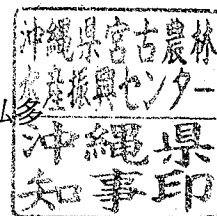 沖縄県宮古農林
水産振興センター
沖縄県
知事印